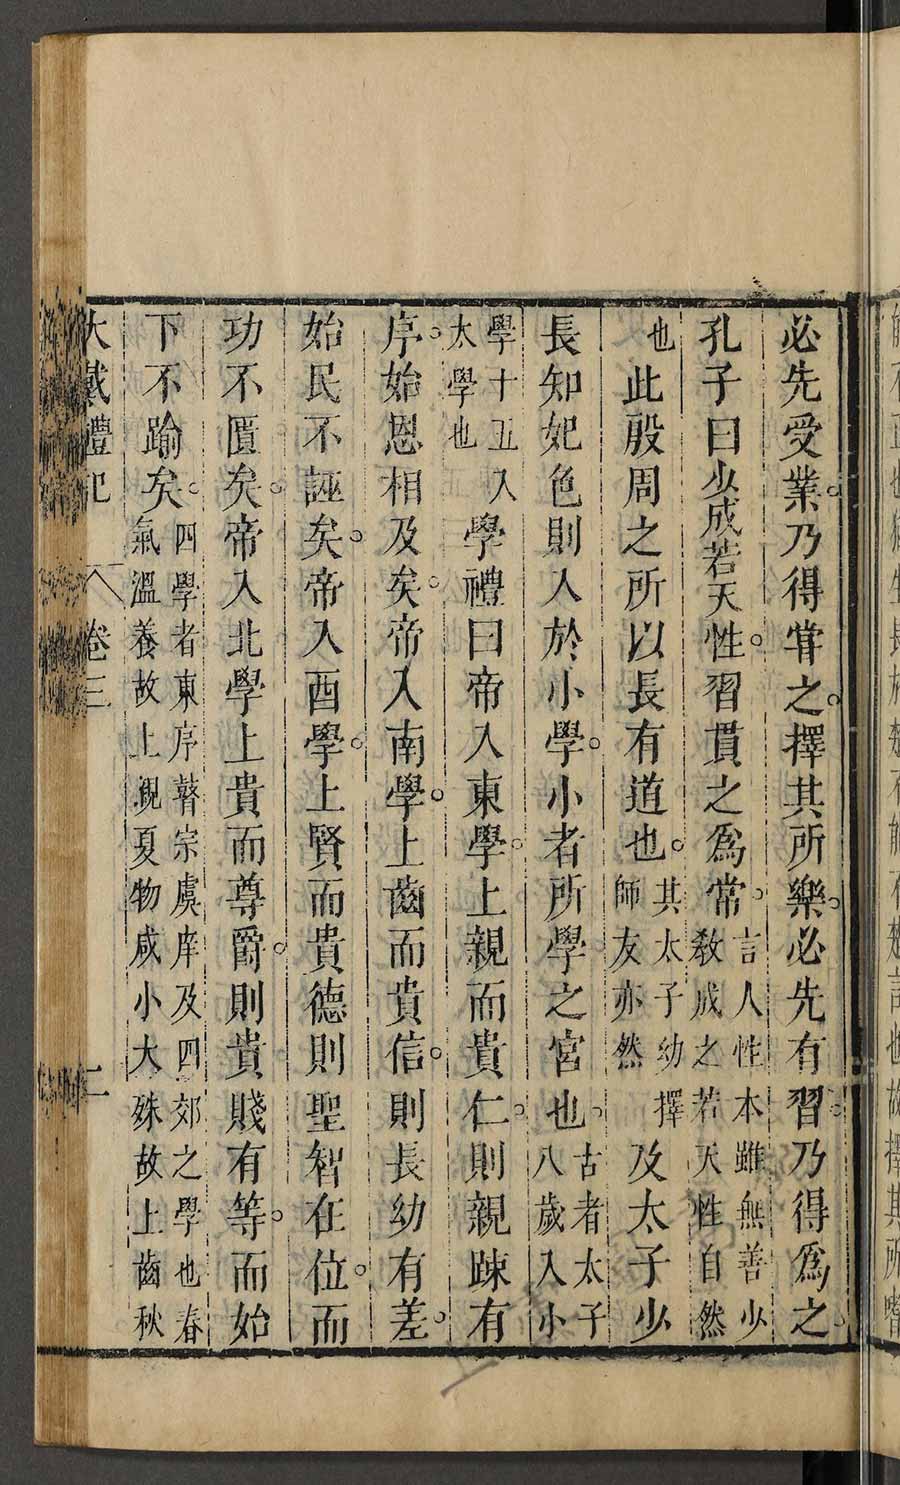 必先受業乃得甞之擇其所樂必先有習乃得爲之
孔子曰少成若天性習貫之爲常言人性本雖無善少教成之若天性自然
也此殷周之所以長有道也其太子幼擇師友亦然及太子少
長知妃色則入於小學小者所學之宮也古者太子八歲入小
學十五入太學也學禮曰帝入東學上親而貴仁則親踈有
序始恩相及矣帝入南學上齒而貴信則長幼有差
始民不誣矣帝入西學上賢而貴德則聖智在位而
功不匱矣帝入北學上貴而尊爵則貴賤有等而始
下不踰矣四學者東序瞽宗虞庠及四郊之學也春氣溫養故上親夏物咸小大殊故上齒秋
大戴禮記 卷三 二